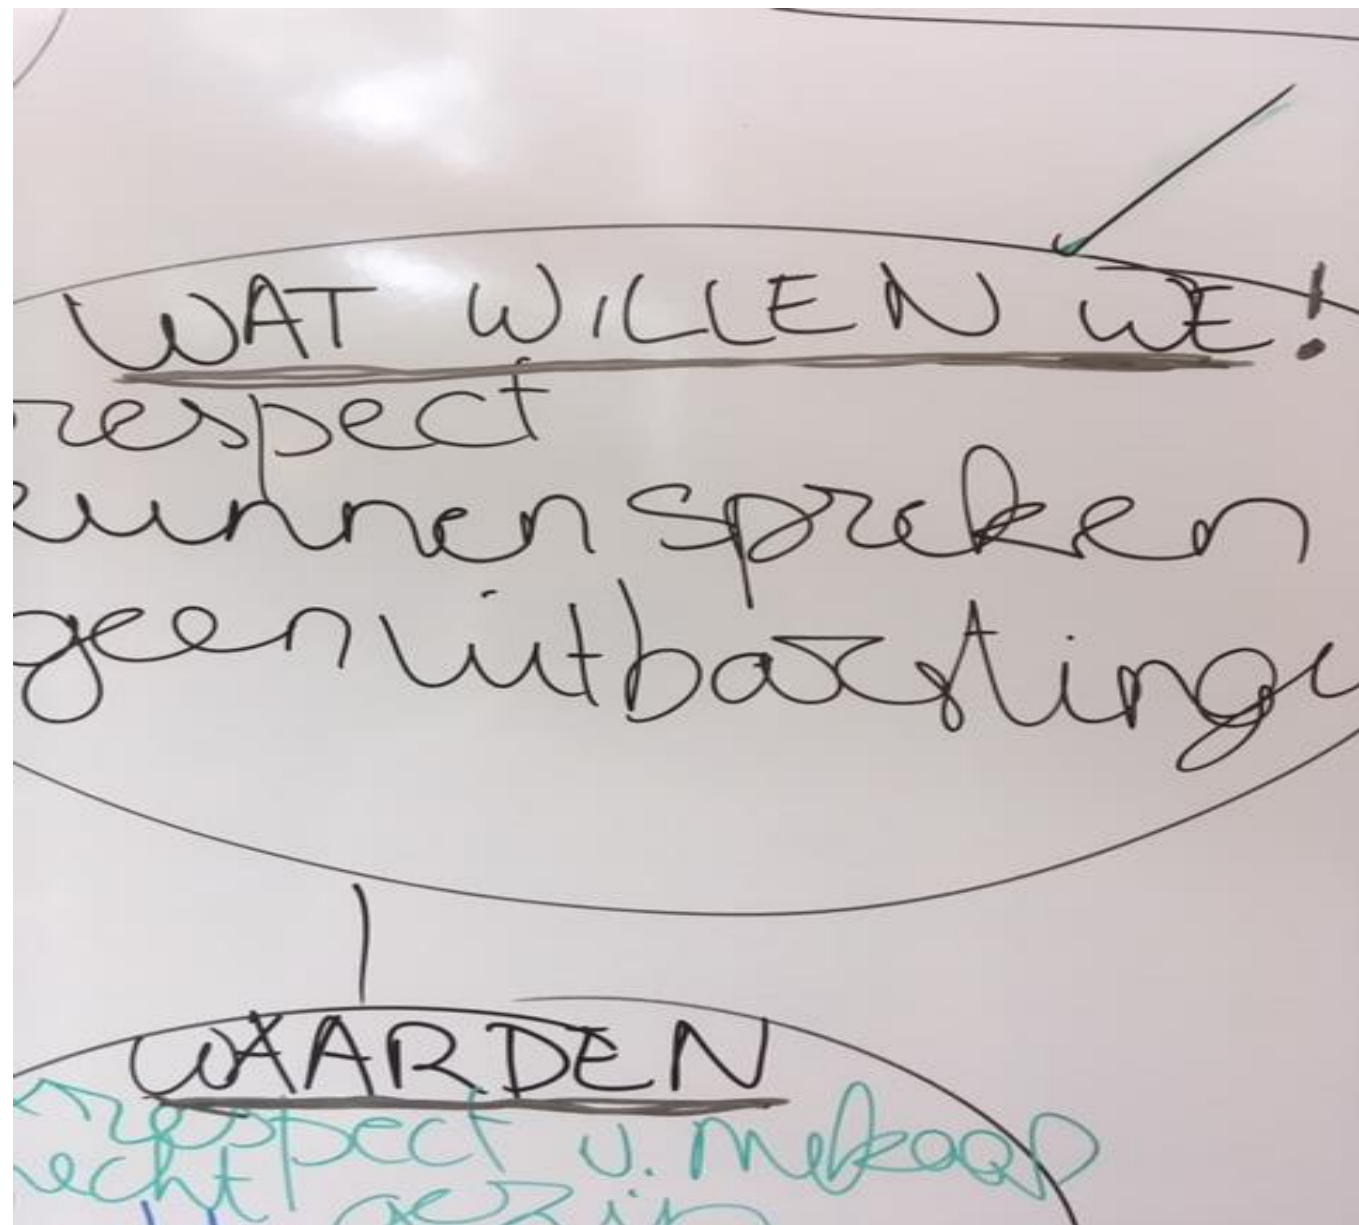 WAT WILLEN WE!
respect
kunnen spreken
geen uitbarstinge
WAARDEN
respect v. mekaar
echt gezin